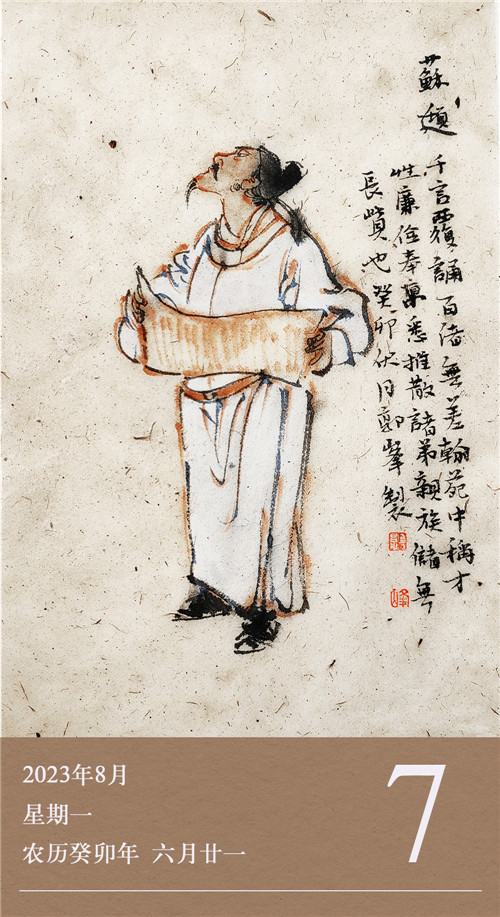 蘇頲
千言覆誦百無差翰苑中稱才
性廉儉奉稟悉推散諸弟親族儲無
長貲也癸卯伏月鄭峯製
2023年8月
星期一
农历癸卯年 六月廿一
7